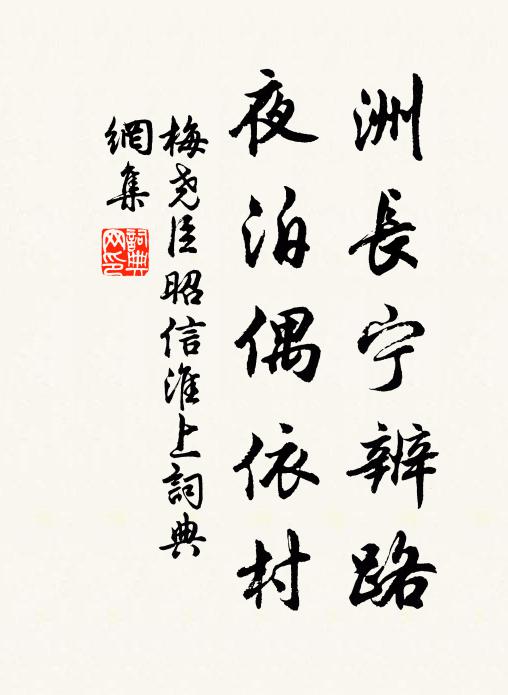 洲長宁辨路
夜泊偶依村
梅尧臣昭信淮上詞典
網集
詞典網印